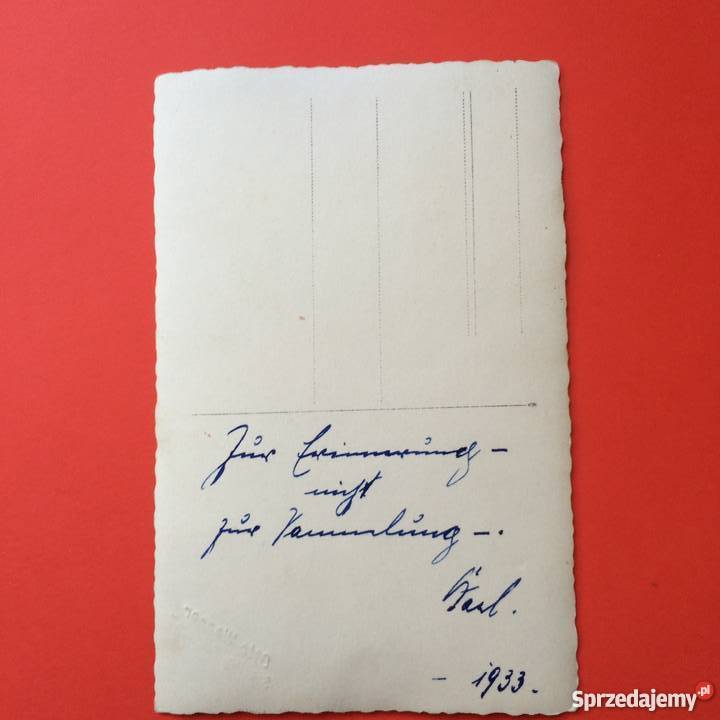 Zur Erinnerung –
nicht
zur Sammlung –.
Karl.
– 1933.
Sprzedajemy.pl